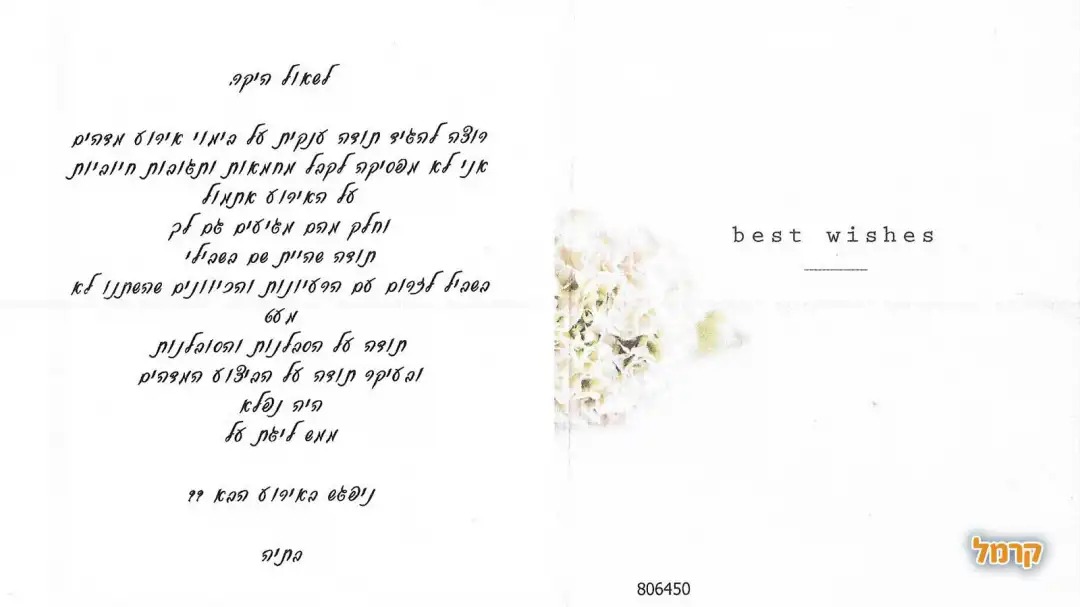 לשאול היקר.
רוצה להגיד תודה ענקית על בימוי אירוע מדהים
אני לא מפסיקה לקבל מחמאות ותגובות חיוביות
על האירוע אתמול
וחלק מהם מגיעים גם לך
תודה שהיית שם בשבילי
בשביל לזרום עם הרעיונות והכיוונים שהשתנו לא
מעט
תודה על הסבלנות והסובלנות
ובעיקר תודה על הביצוע המדהים
היה נפלא
ממש ליגת על
ניפגש באירוע הבא ??
בתיה
best wishes
קרמל
806450